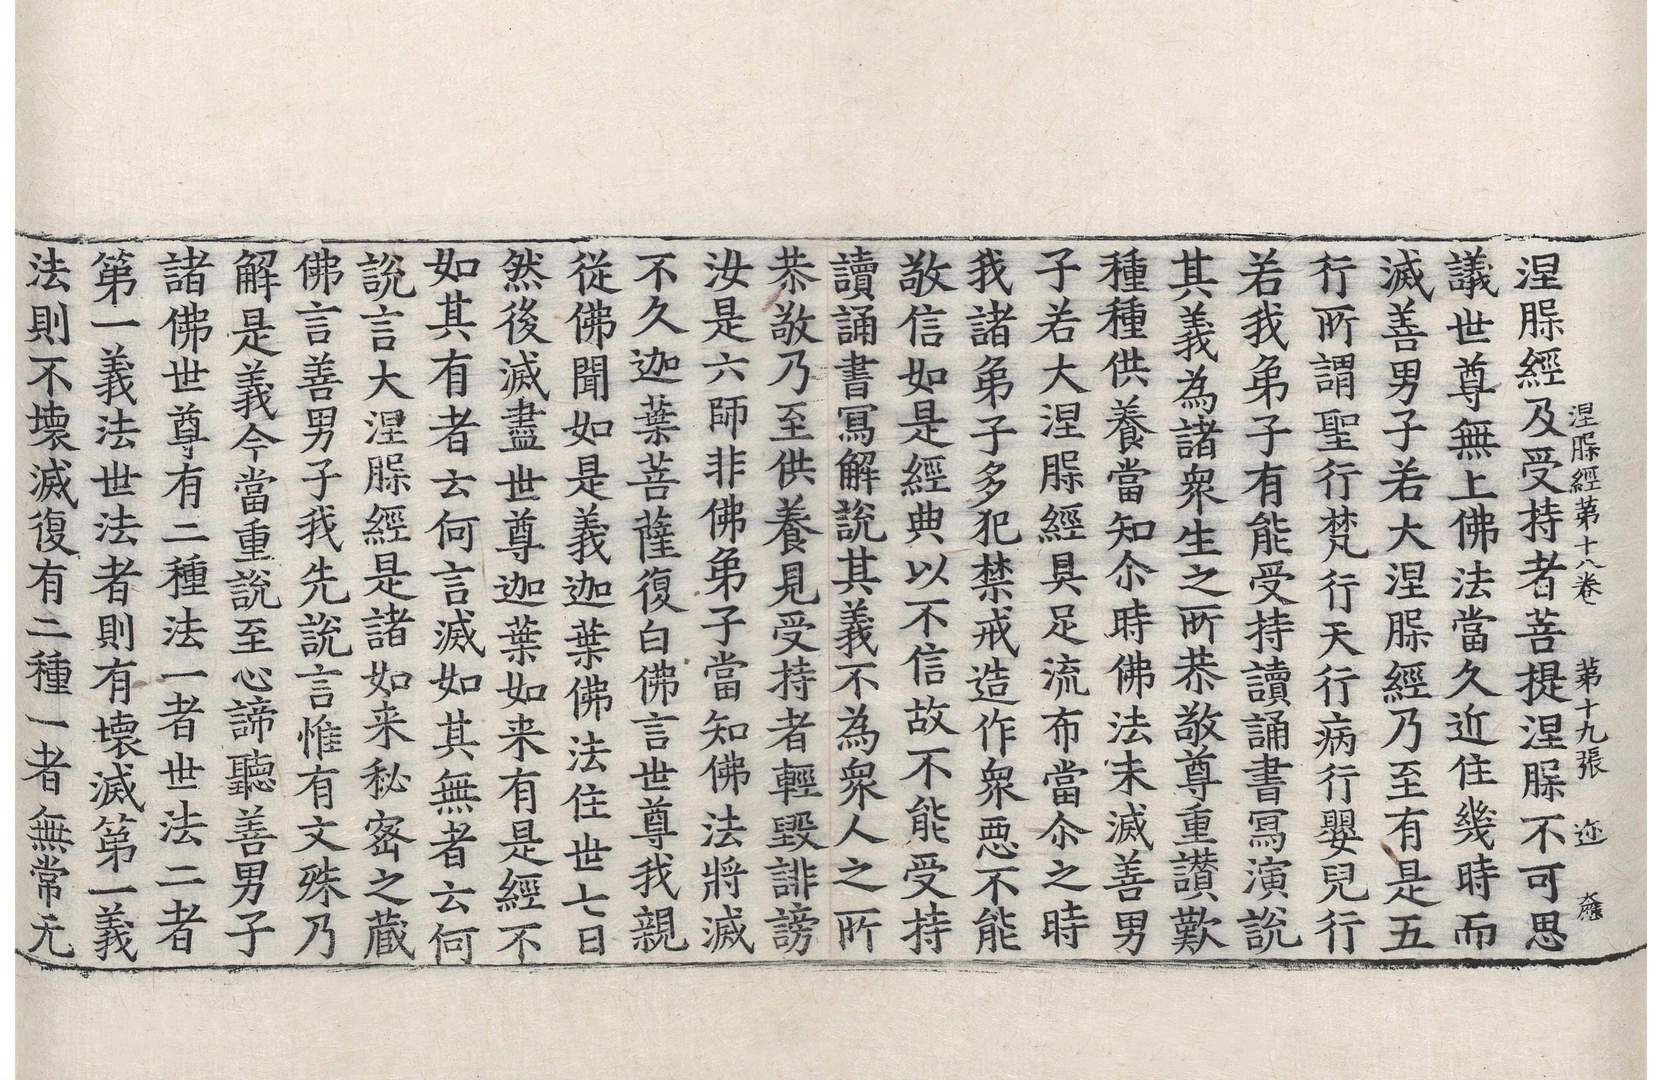 涅槃經第十八卷　第十九張　迩
涅槃經及受持者菩提涅槃不可思
議世尊無上佛法當久近住幾時而
滅善男子若大涅槃經乃至有是五
行所謂聖行梵行天行病行嬰兒行
若我弟子有能受持讀誦書寫演說
其義為諸眾生之所恭敬尊重讃歎
種種供養當知尒時佛法未滅善男
子若大涅槃經具足流布當尒之時
我諸弟子多犯禁戒造作眾惡不能
敬信如是經典以不信故不能受持
讀誦書寫解說其義不為眾人之所
恭敬乃至供養見受持者輕毀誹謗
汝是六師非佛弟子當知佛法將滅
不久迦葉菩薩復白佛言世尊我親
從佛聞如是義迦葉佛法住世七日
然後滅盡世尊迦葉如来有是經不
如其有者云何言滅如其無者云何
說言大涅槃經是諸如来秘密之藏
佛言善男子我先說言惟有文殊乃
解是義今當重說至心諦聽善男子
諸佛世尊有二種法一者世法二者
第一義法世法者則有壞滅第一義
法則不壞滅復有二種一者無常无